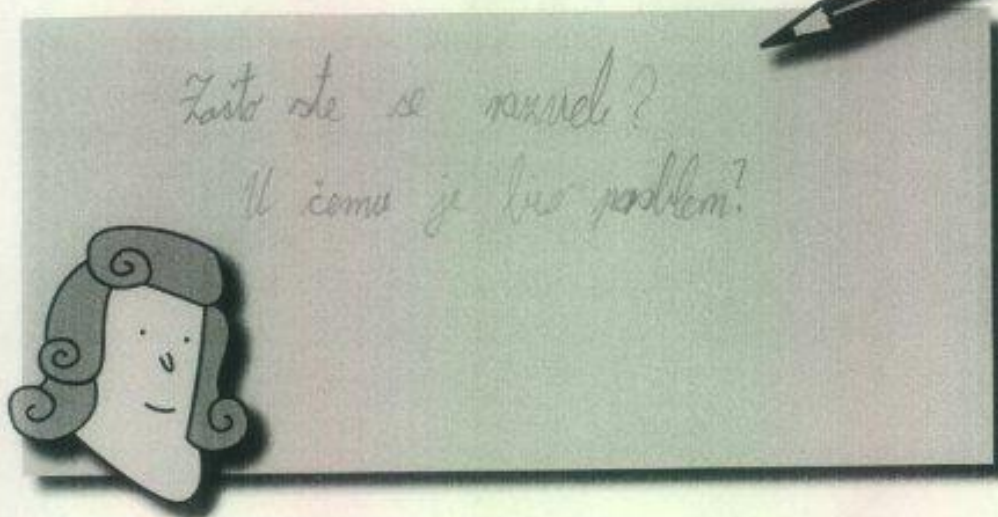 Zašto ste se razveli?
U čemu je bio problem?